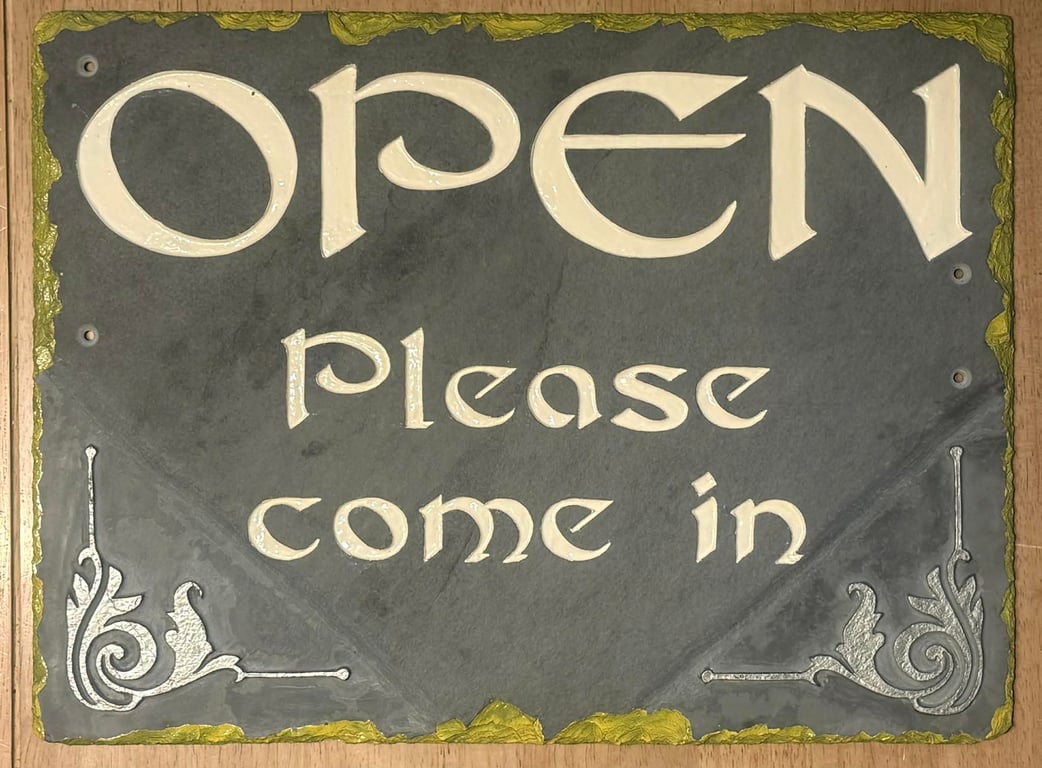 OPEN
Please
come in